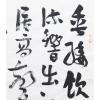 垂緌飲
流響出
居高聲